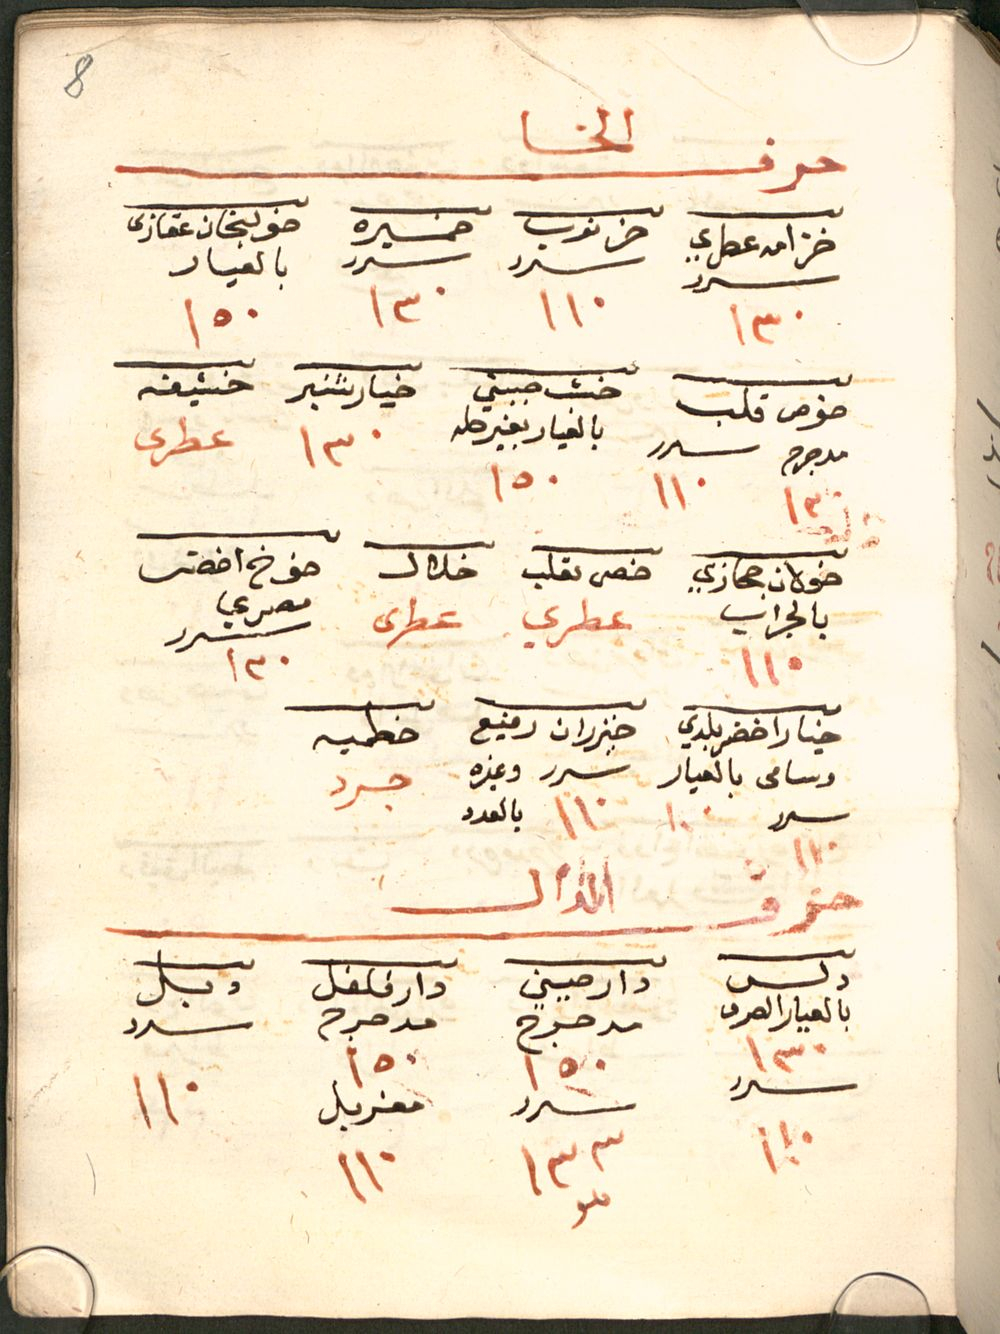 8
حرف الخا
خزامه عطري
سرر
١٣٠
خرنوب
سرر
١١٠
خميره
سرر
١٣٠
خولنجان عقازي
بالعيار
١٥٠
خوص قلب
مدحرج سرر
١٣٠ ١١٠
خشب جبيني
بالعيار بغير طه
١٥٠
خيارشنبر
١٣٠
خشيفه
عطرى
خولان حجازي
بالجراب
١١٠
خصى ثعلب
عطري
خلال
عطرى
خوخ اخضر
مصري
سرر
١٣٠
خيار اخضر بلدي
وسامى بالعيار
١٠٠
سرر
١١٠
خيزران رفيع
سرر وغيره
١١٠ بالعدد
خطميه
جرد
حرف الدال
دلس
بالعيار
١٣٠
سرر
١١٠
دارصيني
مدحرج
١٥٠
سرر
١٣٣
دارفلفل
مدحرج
١٥٠
مغربل
١١٠
دبل
سرر
١١٠